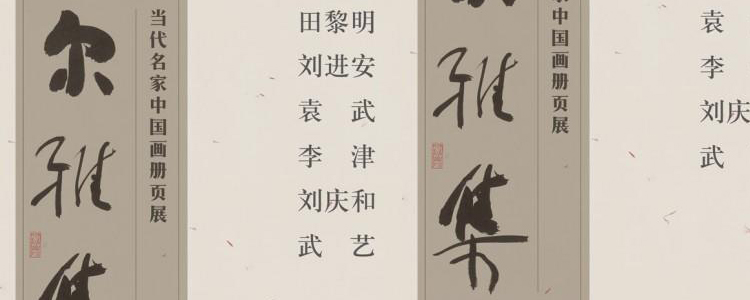 尔雅集
当代名家中国画册页展
田黎明
刘进安
袁武
李津
刘庆和
武艺
雅集
中国画册页展
袁
李
刘庆
武